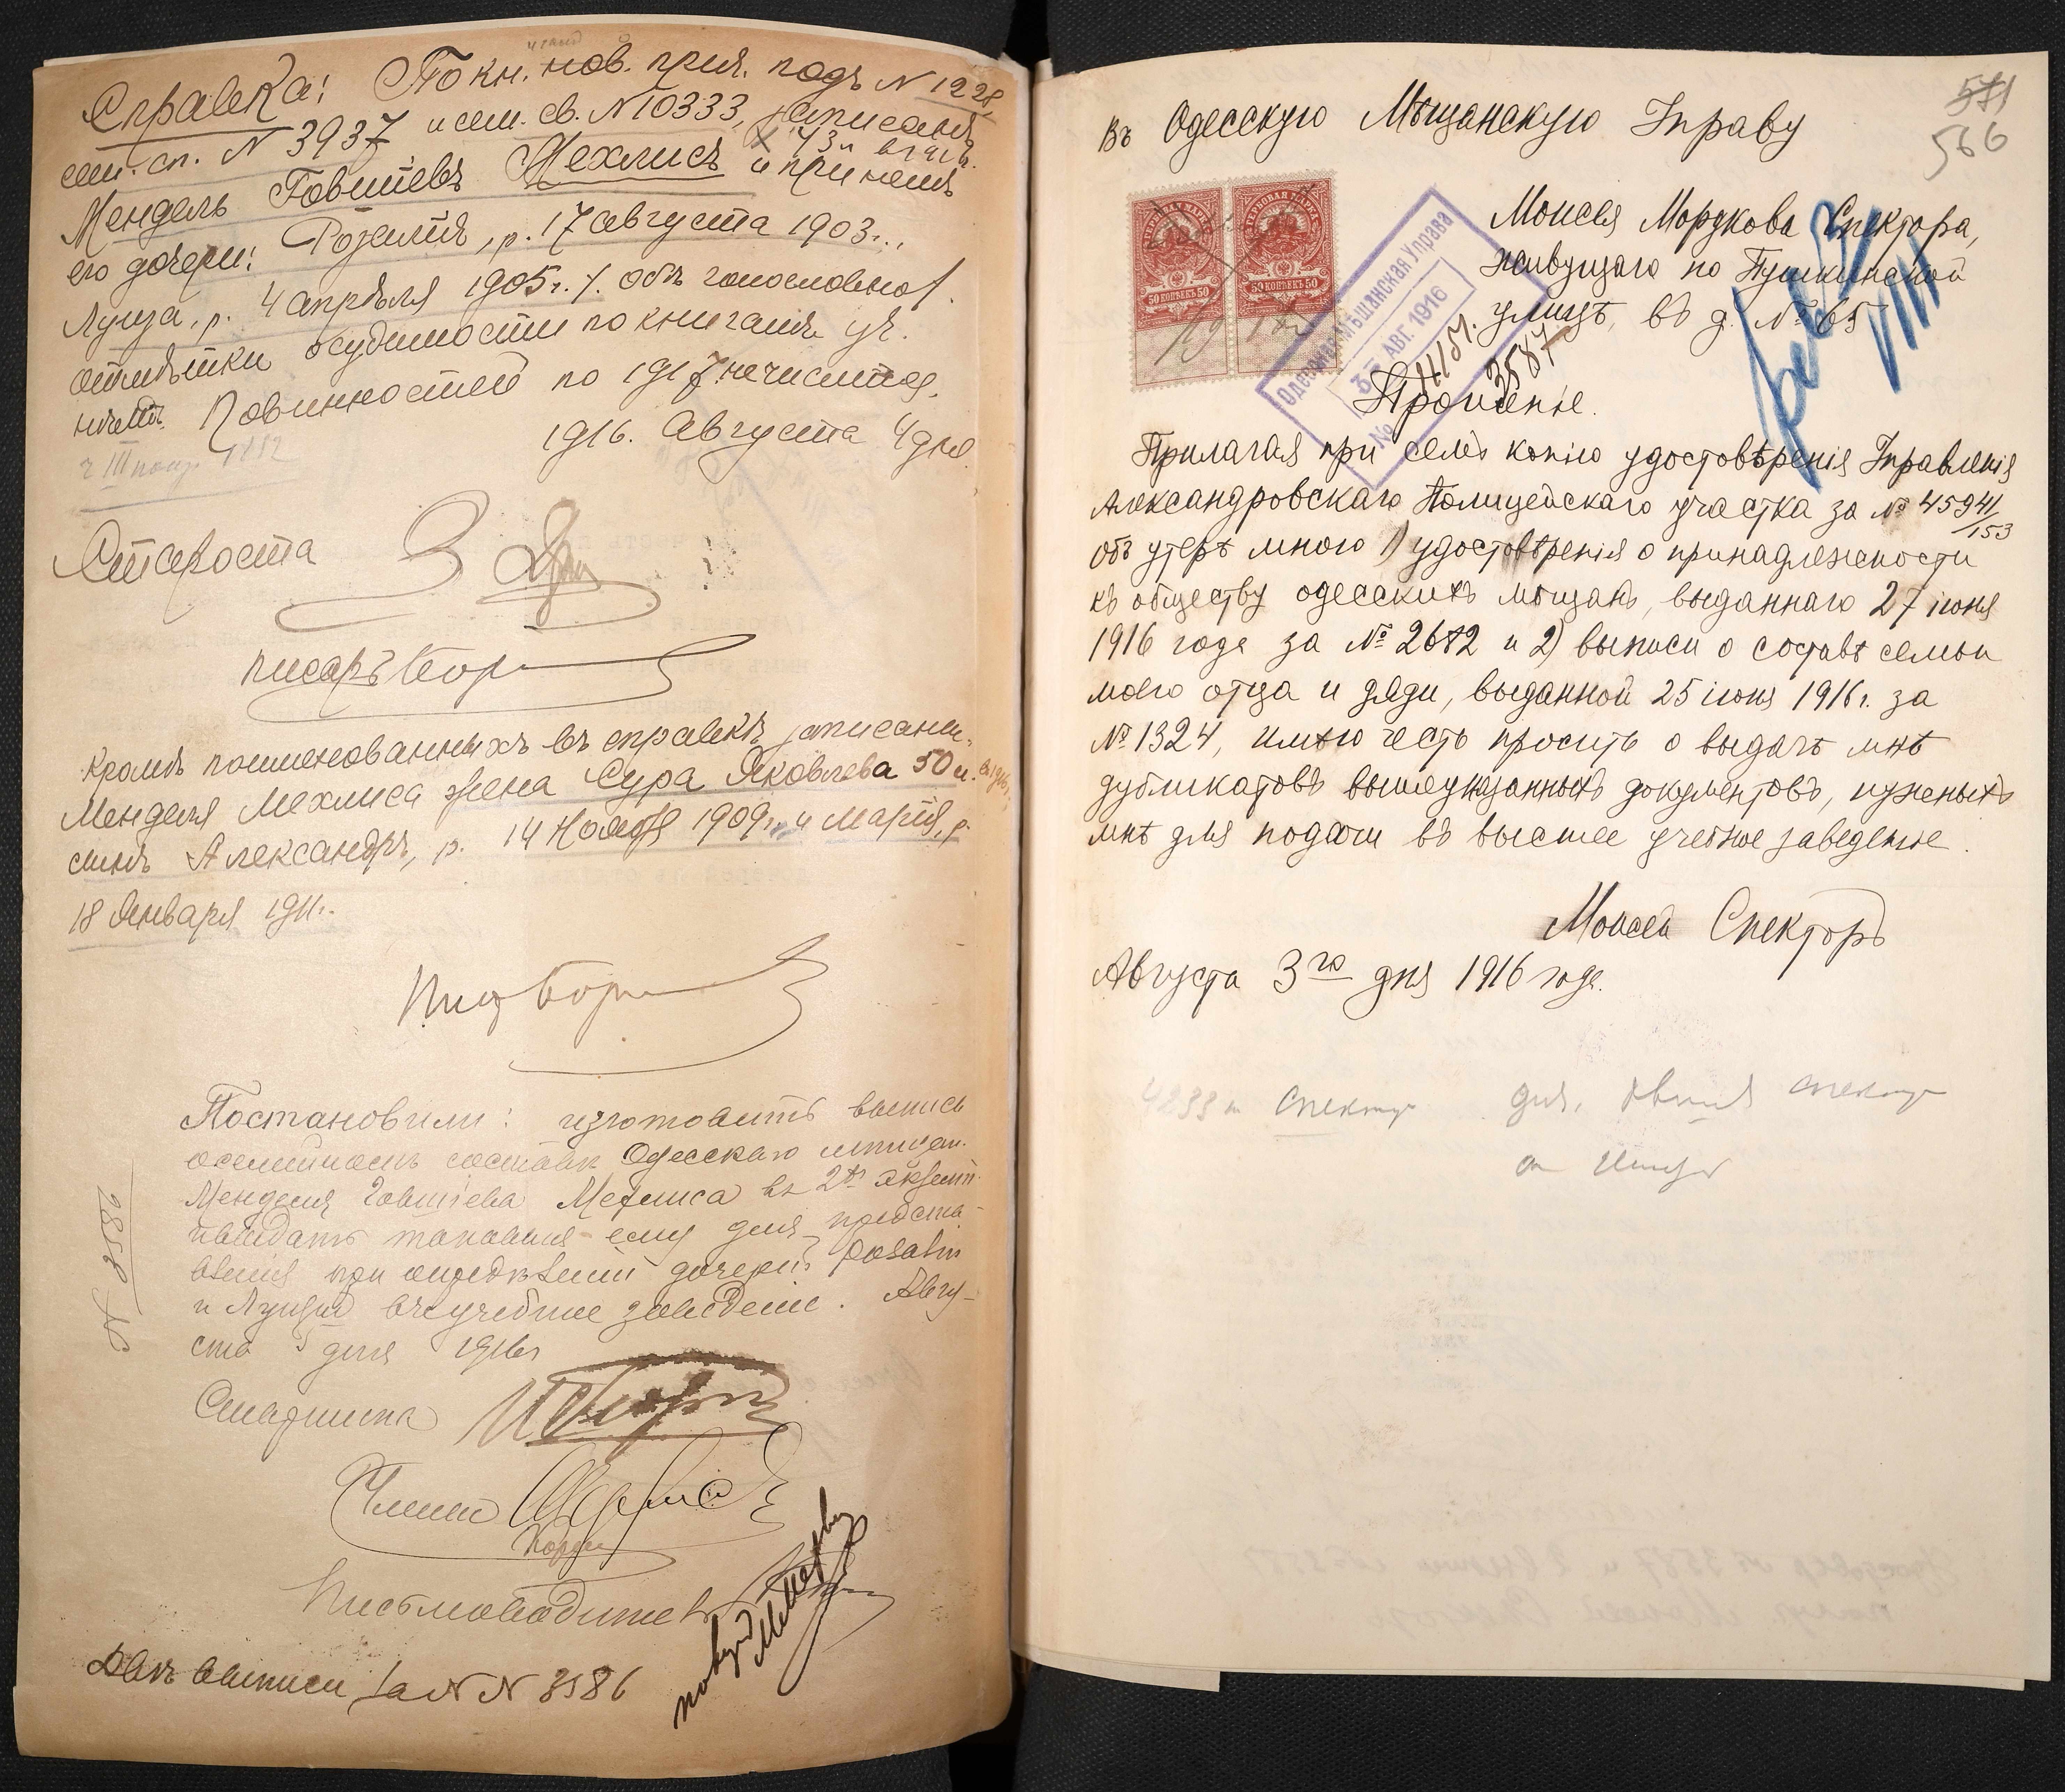 Справка: По кн. нов. прил. подъ N 1228
сем. сп. N 3937 и сем. св. N 10333, записанъ
Мендель Говшіевъ Мехлисъ 43 л. в 1916. и при немъ
его дочери: Розалія, р. 17 августа 1903 г.,
Луиза, р. 4 апрѣля 1905 г. /. обѣ голословно /.
отмѣтки о судимости по книгамъ уч.
нѣтъ. Повинностей по 1917 не числится.
1916. Августа 4 дня.
Староста
писарь
Кромѣ поименованныхъ въ справкѣ записаны
Менделя Мехлиса жена Сура Яковлева 50 л. в 1916 г.,
сынъ Александръ, р. 14 Ноября 1909 г. и Марія, р.
18 Января 1911 г.
Постановили: изготовить выпись
о семейномъ составѣ Одесскаго мѣщан.
Менделя Говшіева Мехлиса въ 2хъ экземп.
и выдать таковыя ему для представ-
вленія при опредѣленіи дочерей Розаліи
и Луизы въ учебное заведеніе. Авгу-
ста 5 дня 1916 г.
Старшина
Членъ
Письмоводитель
N 3586
Двѣ выписи за N N 3586
571
566
Въ Одесскую Мѣщанскую Управу
Моисея Мордкова Спектора,
живущаго по Пушкинской
улицѣ, въ д. № 65
50 КОПѢЕКЪ 50
50 КОПѢЕКЪ 50
Одесская Мѣщанская Управа
3 АВГ. 1916
№
3587
Прошеніе.
Прилагая при семъ копію удостовѣренія Управленія
Александровскаго Полицейскаго участка за № 45941/153
объ утерѣ мною 1) удостовѣренія о принадлежности
къ обществу одесскихъ мѣщанъ, выданнаго 27 іюня
1916 года за № 2672 и 2) выписи о составѣ семьи
моего отца и дяди, выданной 25 іюня 1916 г. за
№ 1324, имѣю честь просить о выдачѣ мнѣ
дубликатовъ вышеуказанныхъ документовъ, нужныхъ
мнѣ для подачи въ высшее учебное заведеніе.
Моисей Спекторъ
Августа 3го дня 1916 года.